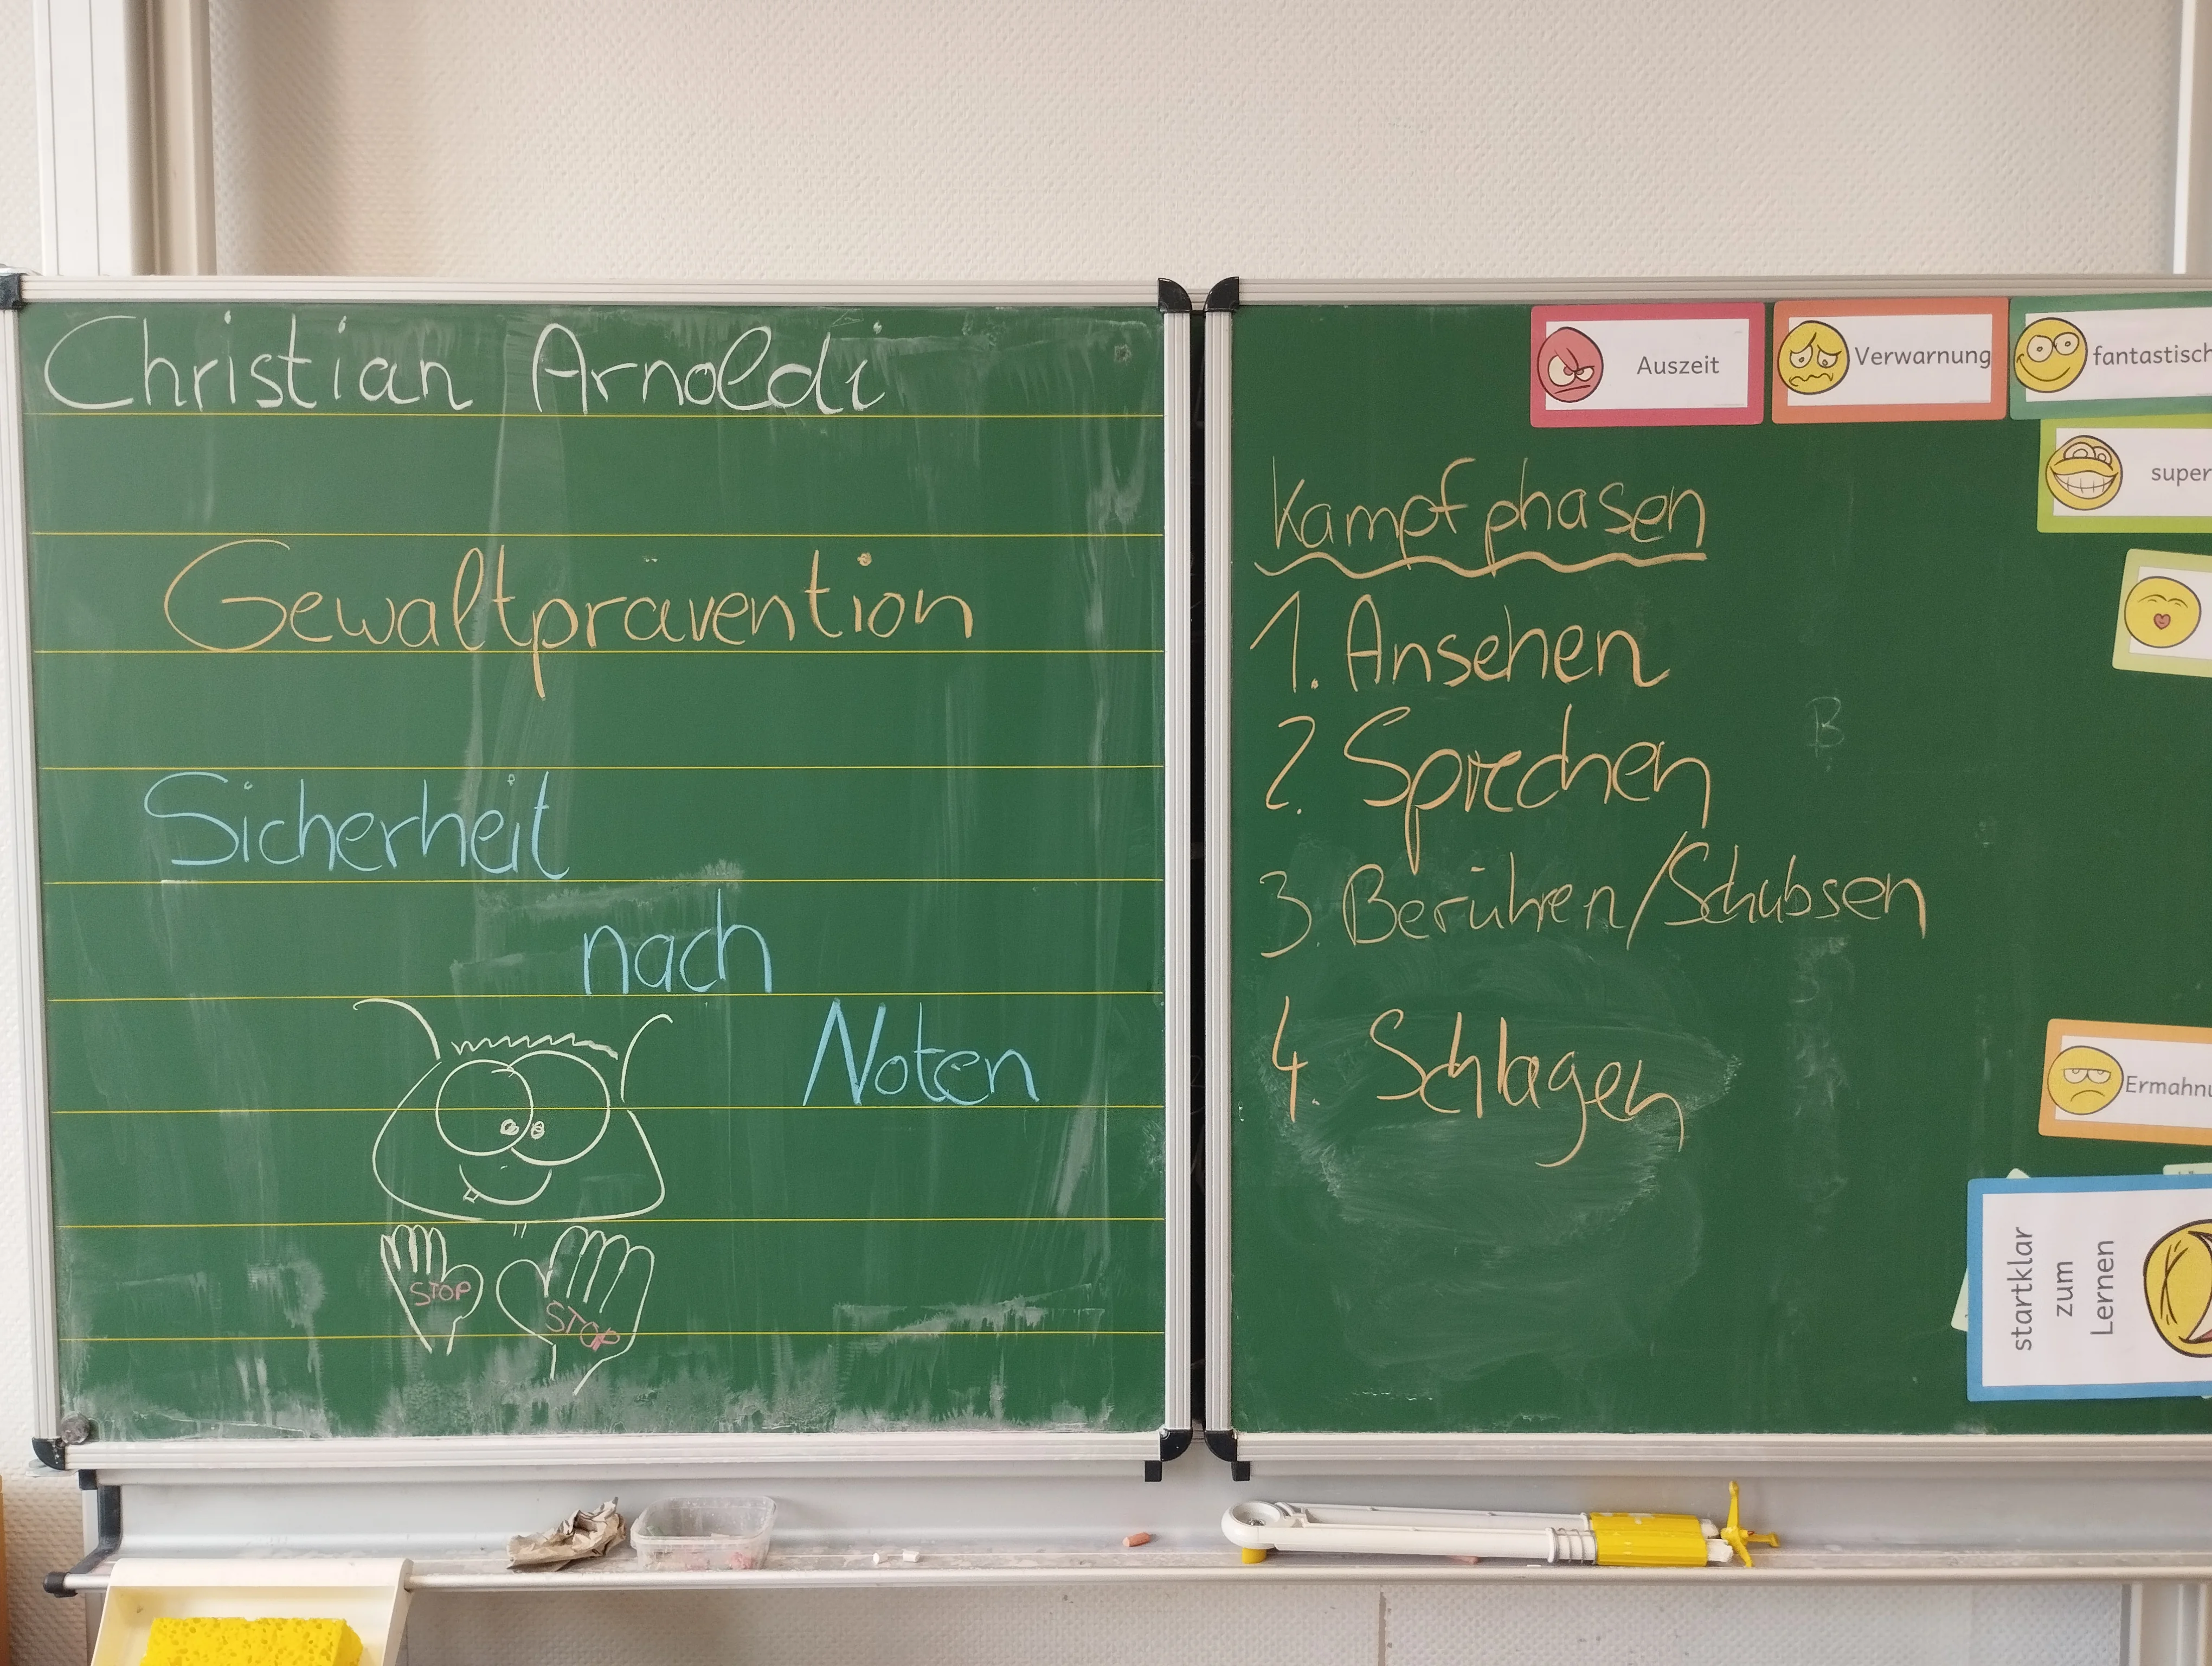 Christian Arnoldi
Gewaltprävention
Sicherheit
nach
Noten
STOP
STOP
Auszeit
Verwarnung
fantastisch
super
Kampfphasen
1. Ansehen
2. Sprechen
B
3. Berühren/Schubsen
4. Schlagen
Ermahnu
startklar
zum
Lernen